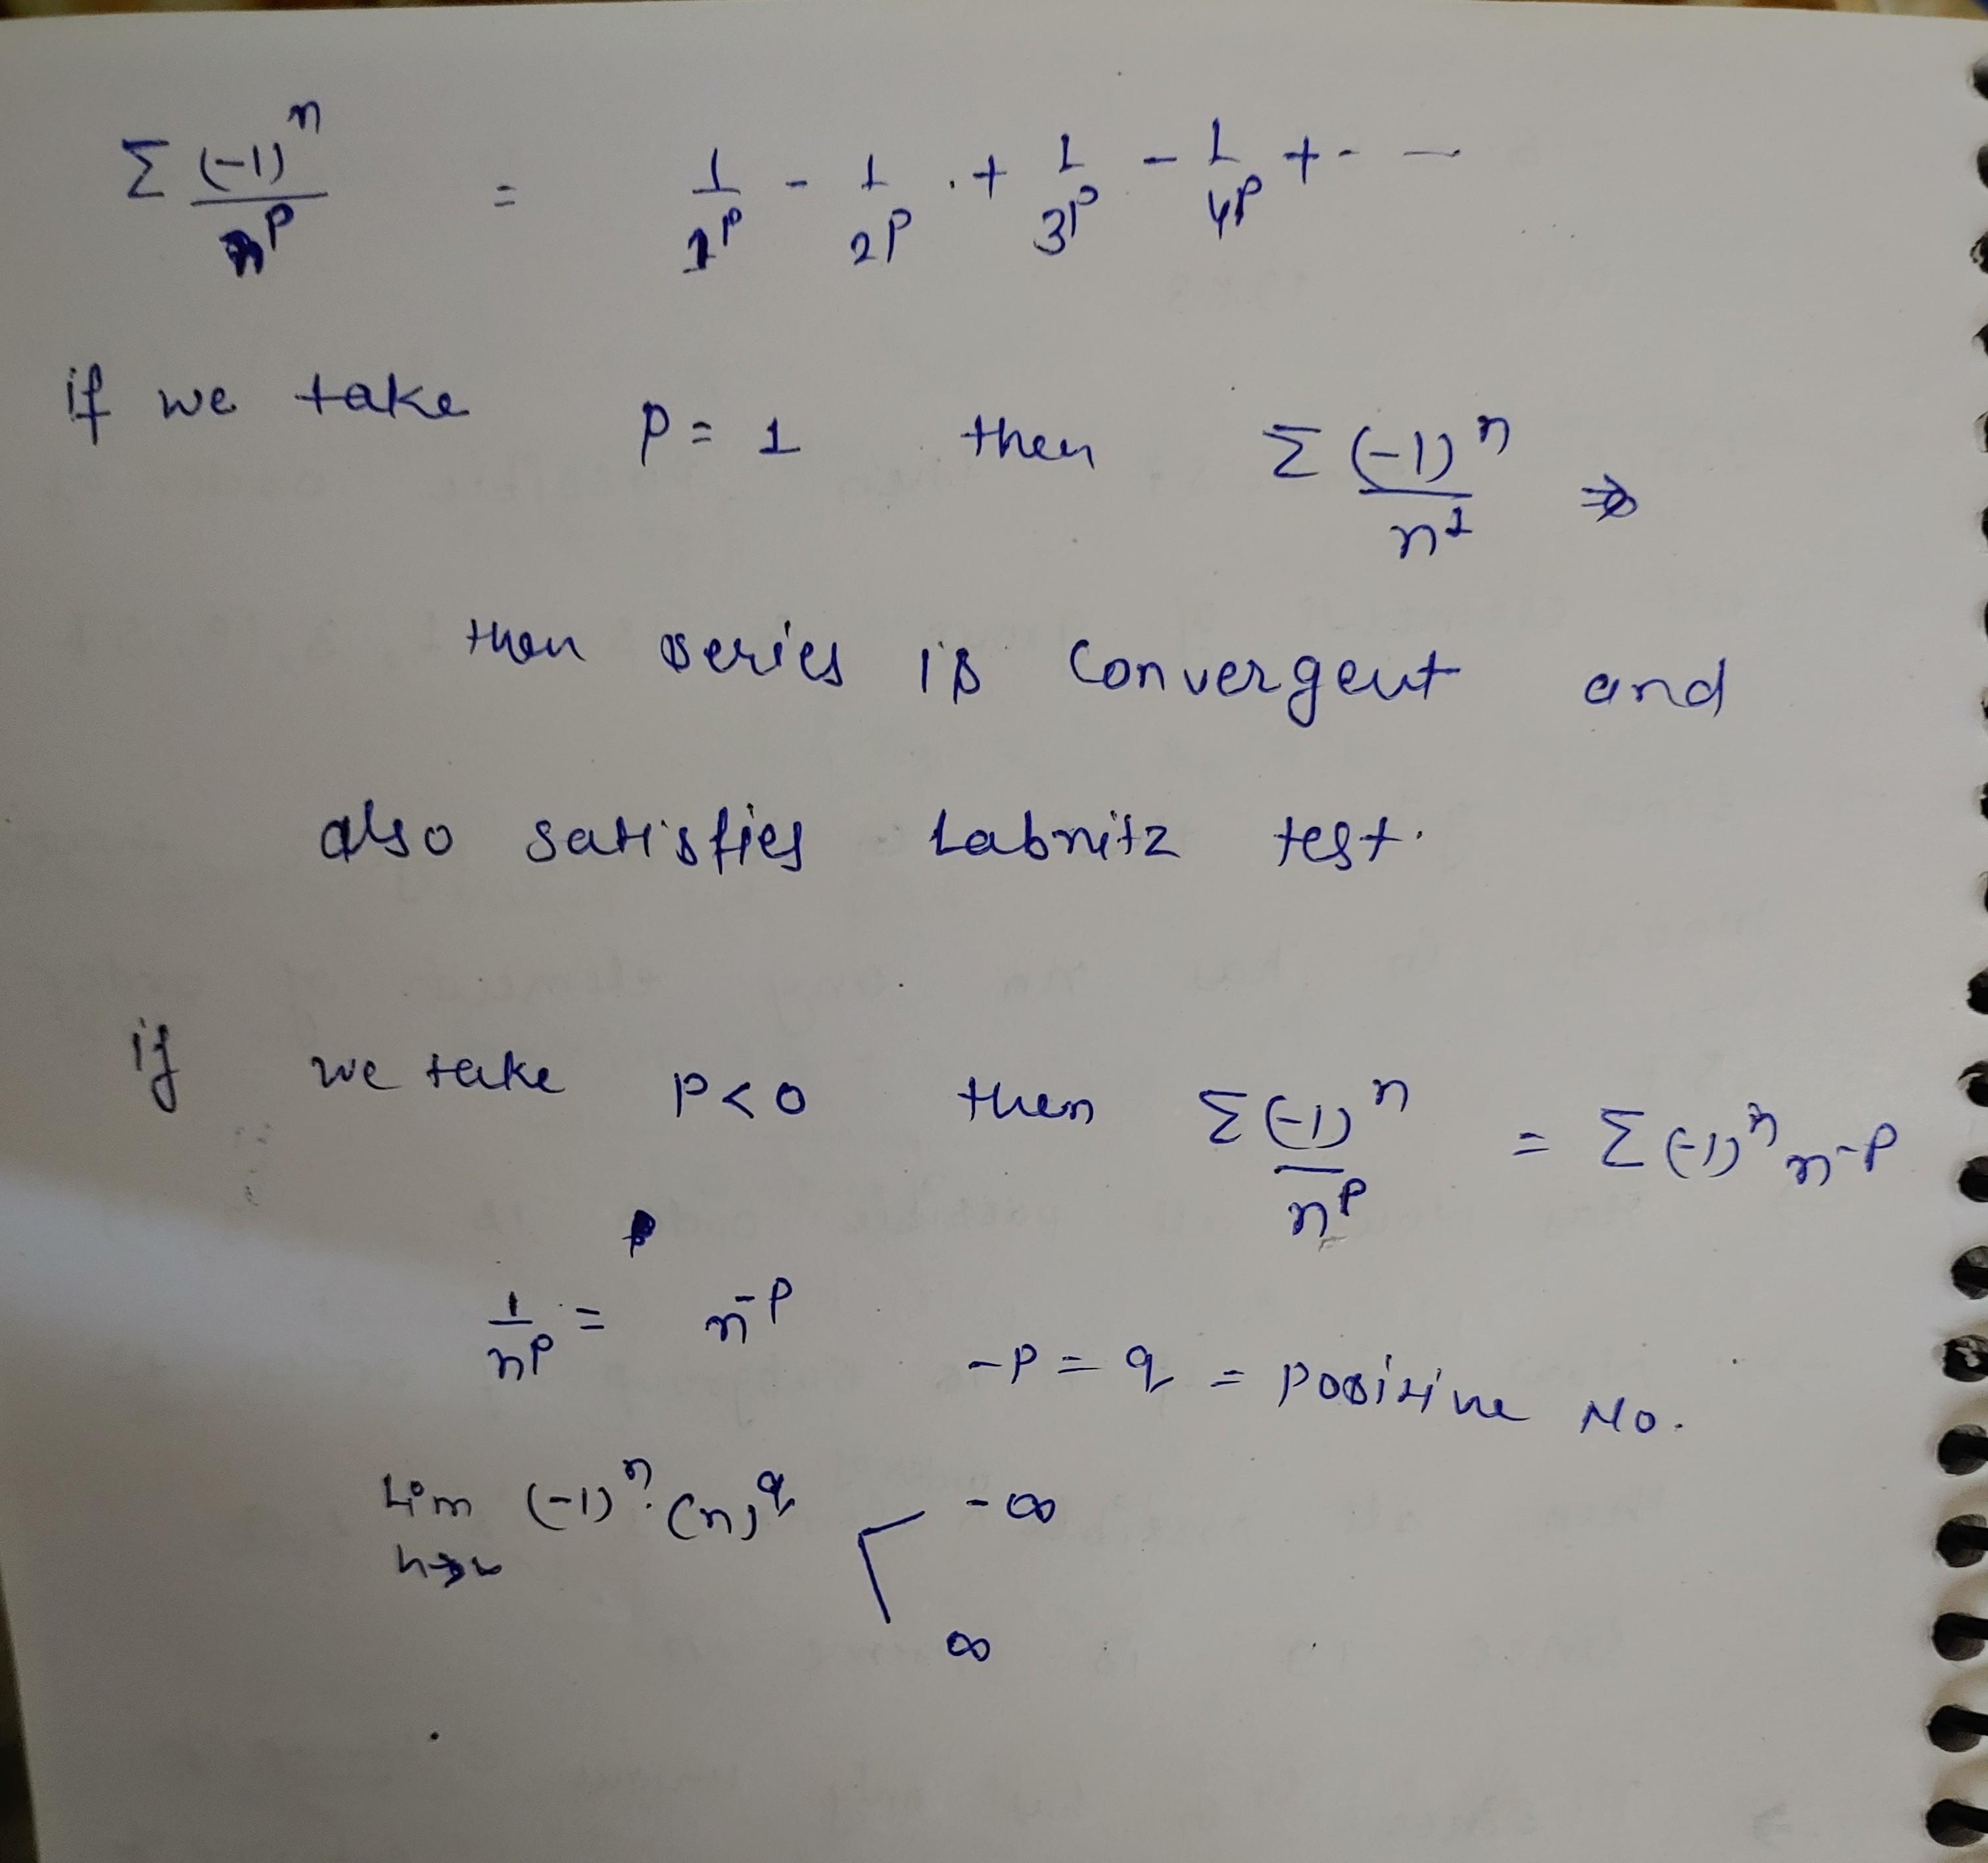 Σ (-1)^n / n^p = 1/1^p - 1/2^p + 1/3^p - 1/4^p + - —
if we take p = 1 then Σ (-1)^n / n^1 ⇒
then series is convergent and
also satisfies Labnitz test.
if we take p < 0 then Σ (-1)^n / n^p = Σ (-1)^n n^-p
1/n^p = n^-p -p = q = positive No.
Lim n→∞ (-1)^n . (n)^q -∞
∞